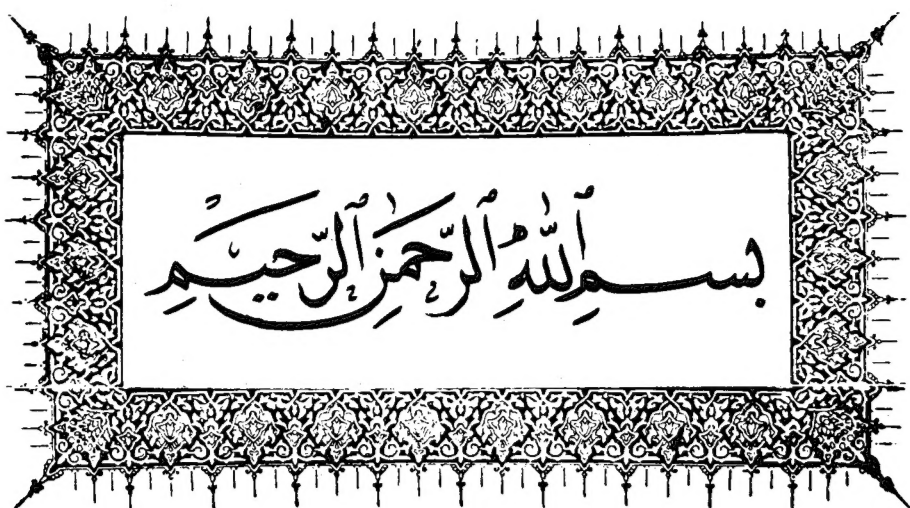 بسم ٱللَّهِ ٱلرَّحمَٰنِ ٱلرَّحيمِ